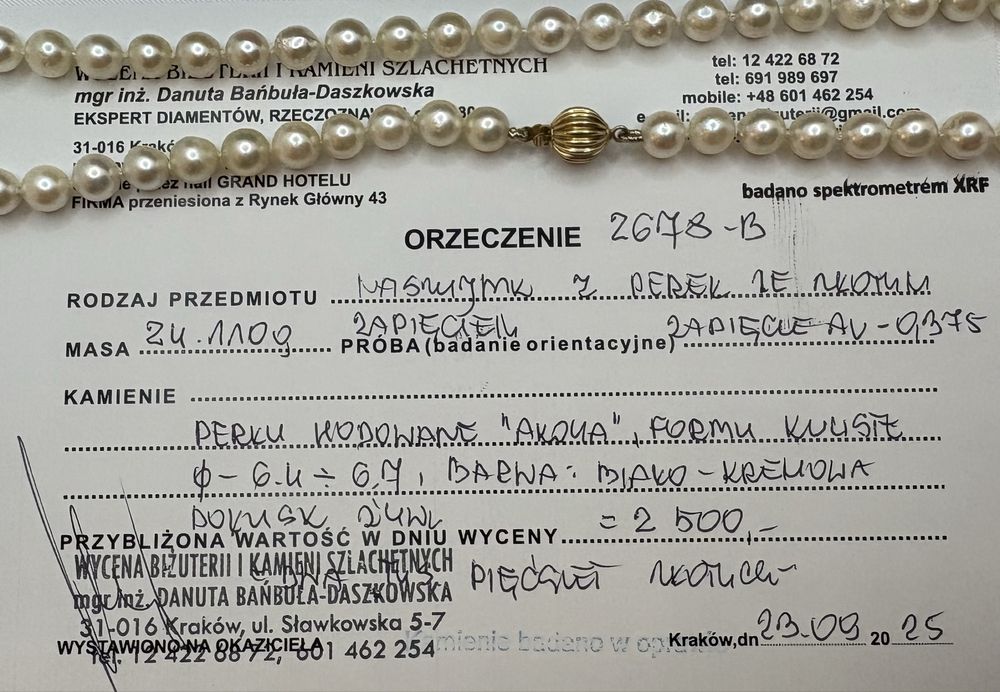 WYCENA BIŻUTERII I KAMIENI SZLACHETNYCH
mgr inż. Danuta Bańbuła-Daszkowska
EKSPERT DIAMENTÓW,
tel: 12 422 68 72
tel: 691 989 697
mobile: +48 601 462 254
31-016
GRAND HOTELU
FIRMA przeniesiona z Rynek Główny 43
badano spektrometrem XRF
ORZECZENIE 2678-B
RODZAJ PRZEDMIOTU NASZYJNIK Z PEREŁ ZE ZŁOTYM
MASA 24.110g ZAPIĘCIEM PRÓBA (badanie orientacyjne) ZAPIĘCIE AU-0,375
KAMIENIE
PERŁY HODOWANE "AKOYA", FORMY KULISTE
ϕ-6.4÷6,7, BARWA: BIAŁO-KREMOWA
POŁYSK ŻYWY
PRZYBLIŻONA WARTOŚĆ W DNIU WYCENY = 2 500,-
DWA TYS PIĘĆSET ZŁOTYCH
WYCENA BIŻUTERII I KAMIENI SZLACHETNYCH
mgr inż. DANUTA BAŃBUŁA-DASZKOWSKA
31-016 Kraków, ul. Sławkowska 5-7
WYSTAWIONO NA OKAZICIELA
tel. 12 422 68 72, 601 462 254
Kamienie badano w oprawie
Kraków,dn 23.09 20 25